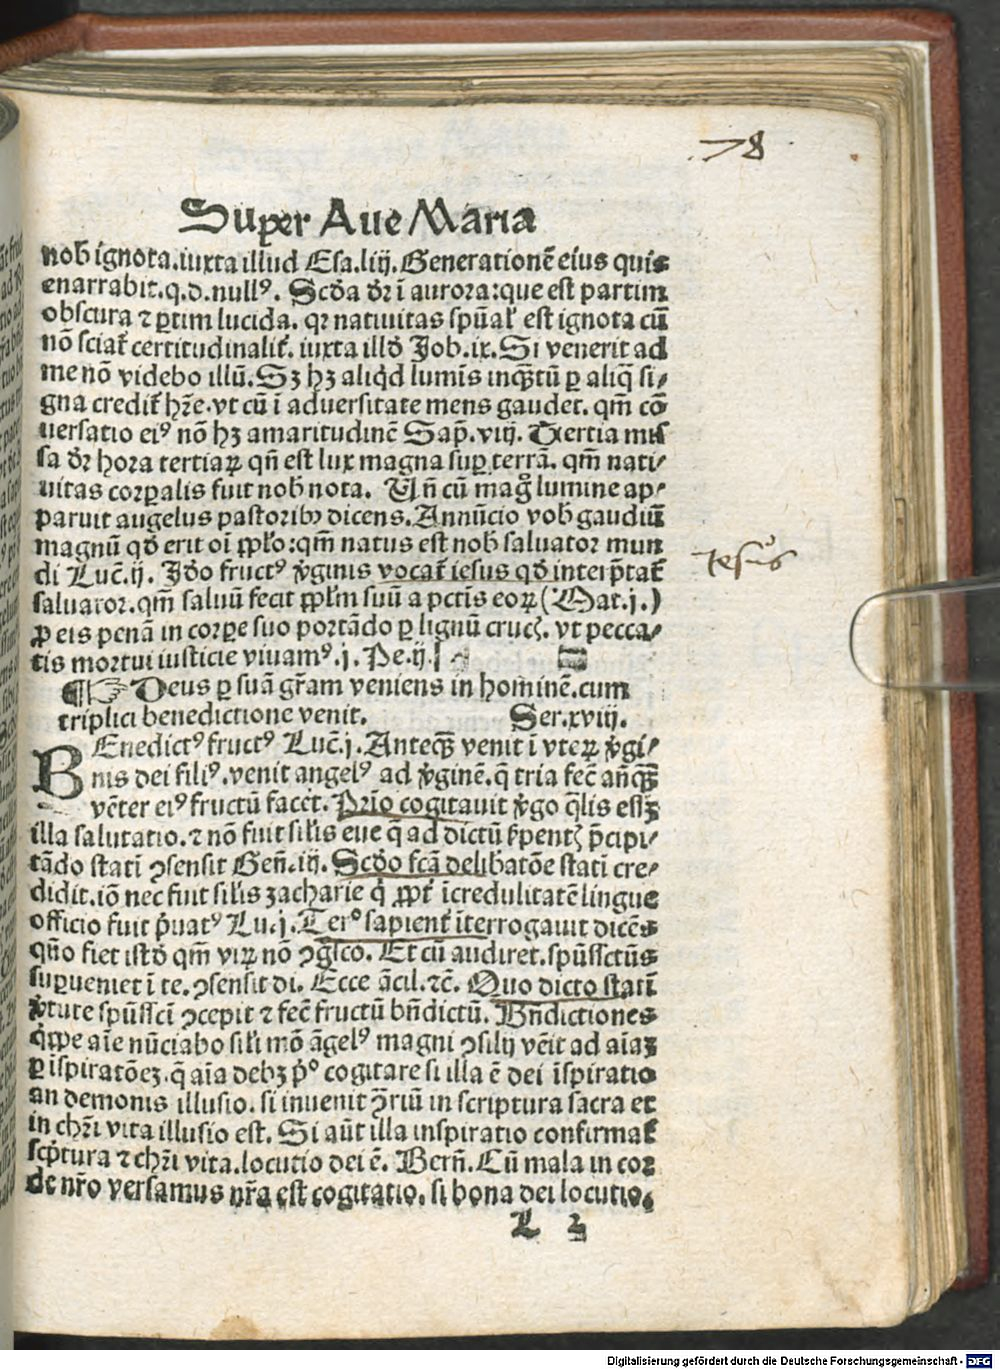 78
Super Aue Maria
nob̄ ignota. iuxta illud Esa. liij. Generationē eius quis
enarrabit. q. d. null⁹. Scd̓a dr̄ ī aurora: que est partim
obscura ⁊ ꝑtim lucida. qꝛ natiuitas sp̄ual̓ est ignota cū
nō sciat̄ certitudinalit̓. iuxta illd̓ Job. ix. Si venerit ad
me nō videbo illū. Sꝫ hꝫ aliqd̓ lumīs inqꝫtū ꝑ aliq̄ si⸗
gna credit̓ hr̄e. vt cū ī aduersitate mens gaudet. qm̄ cō
uersatio ei⁹ nō hꝫ amaritudinē Sap̄. viij. Tertia mis
sa dr̄ hora tertiaꝝ qn̄ est lux magna suꝑ terrā. qm̄ nati⸗
uitas corꝑalis fuit nob̄ nota. Vn̄ cū magͦ lumine ap⸗
paruit augelus pastoribꝰ dicens. Annūcio vob̄ gaudiū
magnū qd̓ erit oī ppl̓o: qm̄ natus est nob̄ saluator mun
di Luc̄. ij. Jd̓o fruct⁹ v̓ginis vocat̄ iesus qd̓ interp̄tat̄
Iesus
saluator. qm̄ saluū fecit ppl̓m suū a pctīs eoꝝ (Mat. j.)
ꝓ eis penā in corꝑe suo portādo ꝑ lignū cruc̄. vt pecca⸗
tis mortui iusticie viuam⁹. j. Pe. ij.
¶☞ Deus ꝑ suā gr̄am veniens in hominē. cum
triplici benedictione venit. Ser. xviij.
BEnedict⁹ fruct⁹ Luc̄. j. Anteqꝫ venit ī vteꝝ v̓gi⸗
nis dei fili⁹. venit angel⁹ ad v̓ginē. q̄ tria fec̄ an̄qꝫ
vēter ei⁹ fructū facēt. Prio cogitauit v̓go q̄lis essꝫ
illa salutatio. ⁊ nō fuit sil̓is eue q̄ ad dictū s̓pent̄ p̄cipi⸗
tādo statī ꝯsensit Gen̄. iij. Scd̓o fcā delibatōe statī cre⸗
didit. iō nec fuit sil̓is zacharie q̓ ꝓpt̓ īcredulitatē lingue
officio fuit p̓uat⁹ Lu. j. Terͦ sapient̓ īterrogauit dicēs
qūo fiet istd̓ qm̄ viꝝ nō ꝯgͦsco. Et cū audiret. spūssctūs
suꝑueniet ī te. ꝯsensit di. Ecce ācil. ⁊c̄. Quo dicto statī
v̓tute spūsscī ꝯcepit ⁊ fec̄ fructū bn̄dictū. Bn̄dictiones
q̓ppe aīe nūciabo sil̓i mō āgel⁹ magni ꝯsilij vēit ad aīaꝫ
ꝑ īspiratōeꝫ. q̄ aīa debꝫ p̓ͦ cogitare si illa ē dei īspiratio
an demonis illusio. si inuenit ꝯ̄riū in scriptura sacra et
in chr̄i vita illusio est. Si aūt illa inspiratio confirmat̄
scp̄tura ⁊ chr̄i vita. locutio dei ē. Bern̄. Cū mala in cor
de nr̄o versamus nr̄a est cogitatio. si bona dei locutio.
L 2
Digitalisierung gefördert durch die Deutsche Forschungsgemeinschaft - DFG